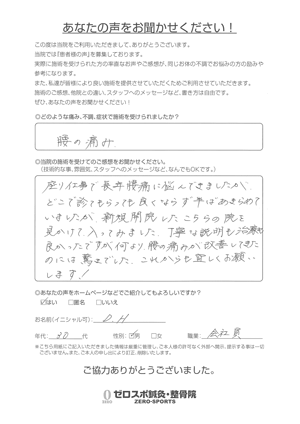 あなたの声をお聞かせください！
この度は当院をご利用いただきまして、ありがとうございます。
当院では『患者様の声』を募集しております。
実際に施術を受けられた方の率直なお声やご感想が、同じお体の不調でお悩みの方の励みや
参考になります。
また、私達が皆様により良い施術を提供させていただくためご利用させていただきます。
施術のご感想、他院との違い、スタッフへのメッセージなど、書き方は自由です。
ぜひ、あなたの声をお聞かせください！
◎どのような痛み、不調、症状で施術を受けられましたか？
腰の痛み
◎当院の施術を受けてのご感想をお聞かせください。
（技術的な事、雰囲気、スタッフへのメッセージなど、なんでもOKです。）
座り仕事で長年腰痛に悩んできましたが、
どこで診てもらっても良くならず半ばあきらめて
いましたが、新規開院したこちらの院を
見かけて入ってみました。丁寧な説明も治療も
良かったですが何より腰の痛みが改善してきた
のには驚きでした。これからも宜しくお願い
します！
◎あなたの声をホームページなどでご紹介してもよろしいですか？
☑はい □匿名 □いいえ
お名前（イニシャル可）： D.H
年代： 30 代 性別： ☑男 □女 職業： 会社員
※こちら用紙にご記入いただきました情報は厳重に管理し、ご本人様の許可なく外部へ開示、提示する事は一切
ございません。また、ご本人の申し出により訂正、削除いたします。
ご協力ありがとうございました。
ゼロスポ鍼灸・整骨院
ZERO-SPORTS